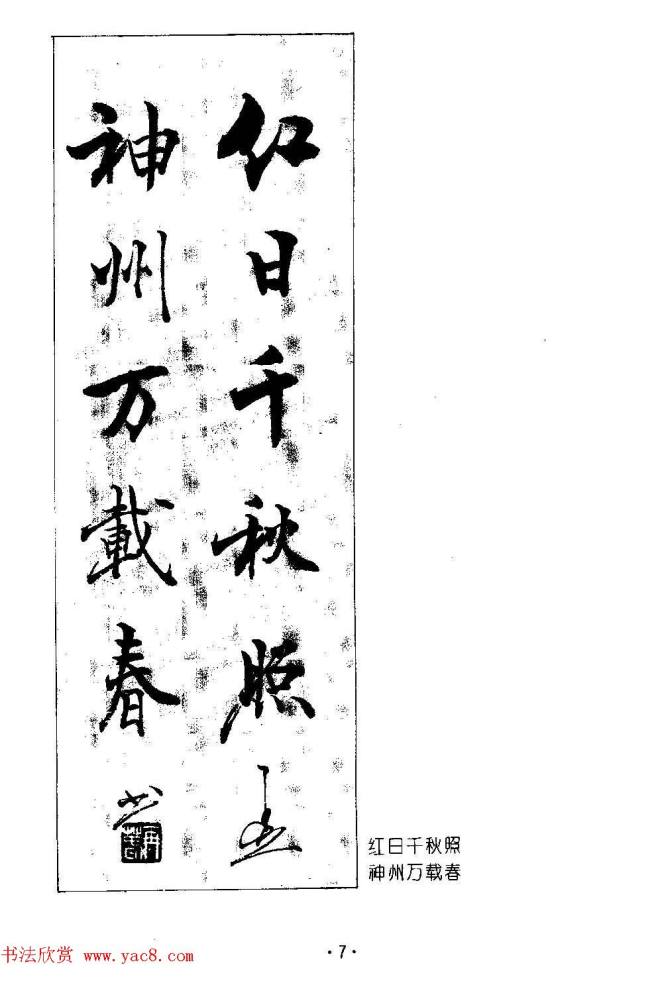 红日千秋照
神州万載春
红日千秋照
神州万载春
书法欣赏 www.yac8.com
·7·